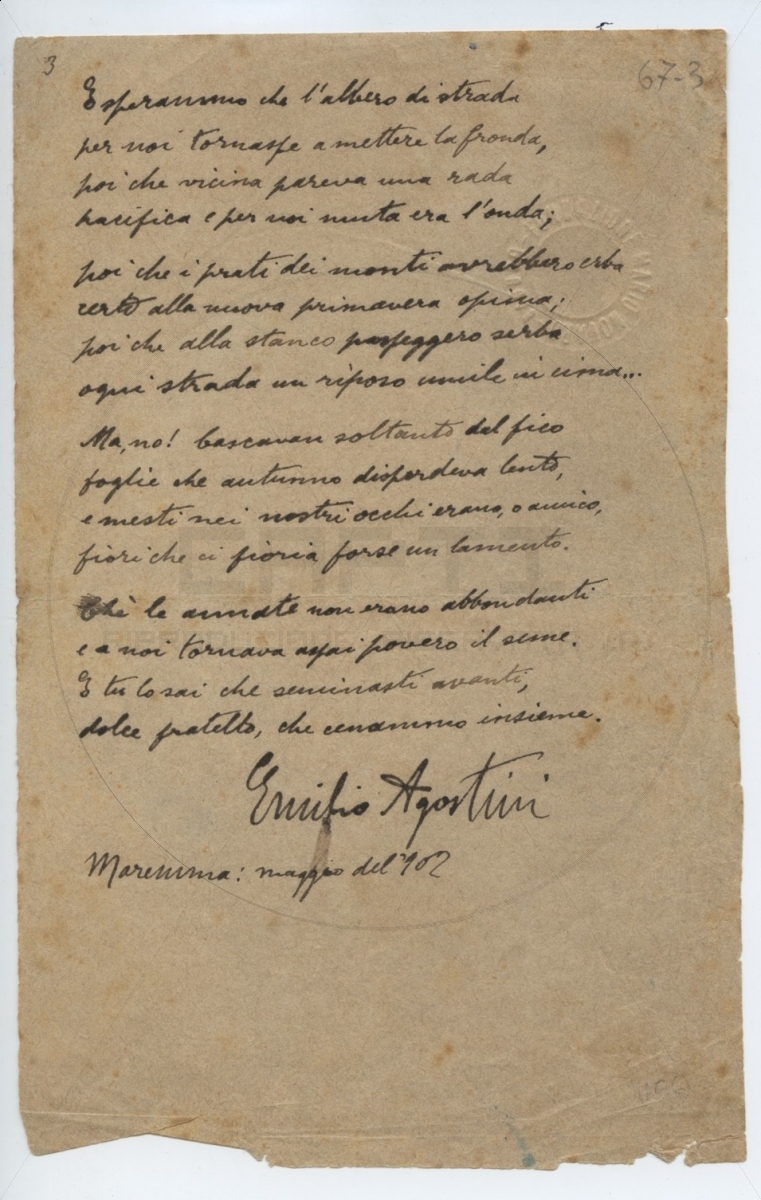 3
67-3
E sperammo che l'albero di strada
per noi tornasse a mettere la fronda,
poi che vicina pareva una rada
pacifica e per noi muta era l'onda;
poi che i prati dei monti avrebbero erba
certo alla nuova primavera opima;
poi che alla stanco passeggero serba
ogni strada un riposo umile in cima...
Ma, no! Cascavan soltanto dal fico
foglie che autunno disperdeva lento,
e mesti nei nostri occhi erano, o amico,
fiori che ci fioria forse un lamento.
Chè le annate non erano abbondanti
e a noi tornava assai povero il seme.
E tu lo sai che seminasti avanti,
dolce fratello, che cenammo insieme.
Emilio Agostini
Maremma: maggio del '902